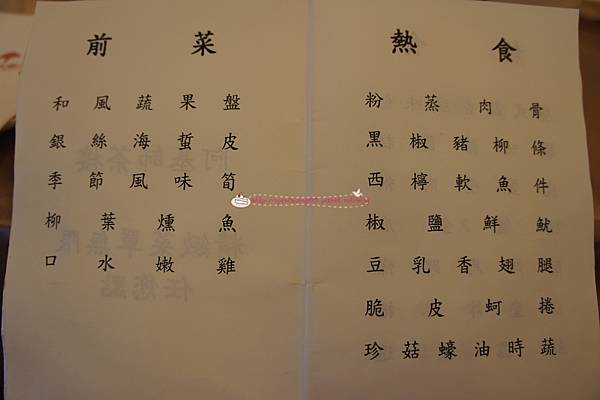 前菜
和風蔬果盤
銀絲海蜇皮
季節風味筍
柳葉燻魚
口水嫩雞
熱食
粉蒸肉骨
黑椒豬柳條
西檸軟魚件
椒鹽鮮魷
豆乳香翅腿
脆皮蚵捲
珍菇蠔油時蔬